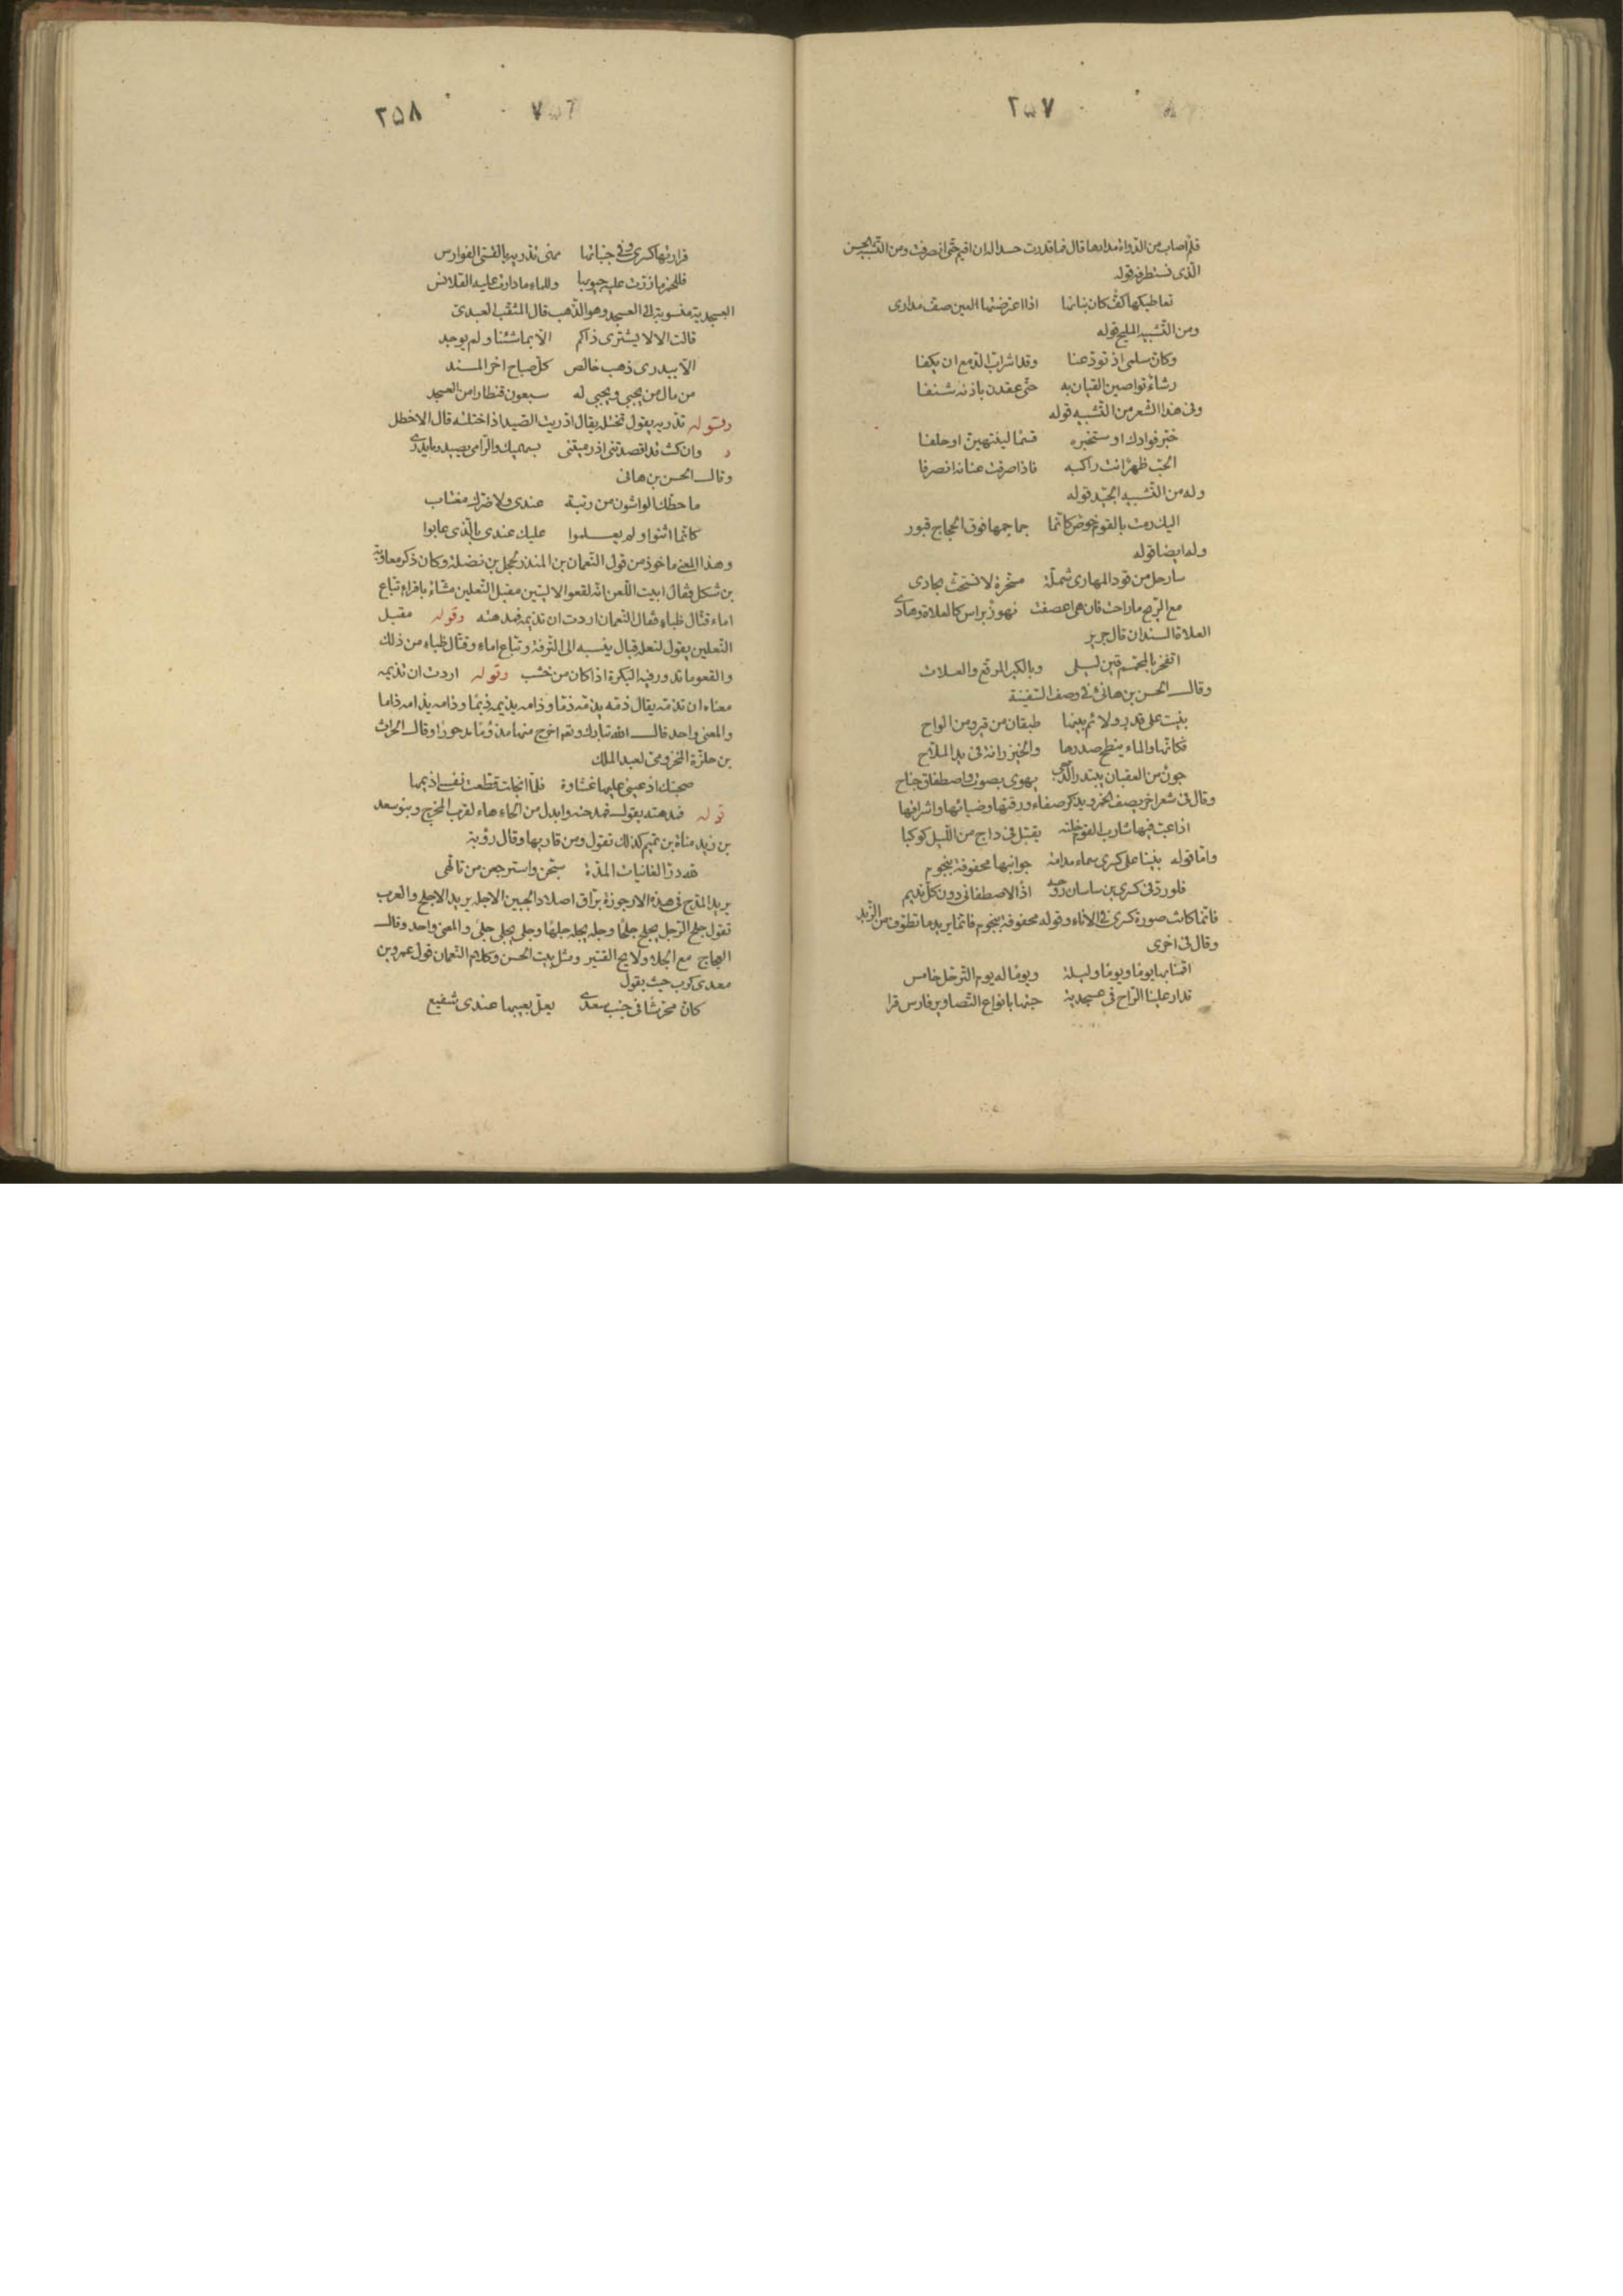 ۲۵۷
فلم اصاب من الدواء مدادها قال فما قدرت حسدا له ان اقيم حتى انصرفت ومن التشبيه الحسن
الذى نستطرفه قوله
تعاطيكها كف كان بنانها اذا اعترضتها العين صف مدارى
ومن التشبيه المليح قوله
وكان سلمى اذ تودعنا وقد اشراب الدمع ان يكفا
رشاء تواصين القيان به حتى عقدن باذنه شنفا
وفى هذا الشعر من التشبيه قوله
خبر فوادك او ستخبره قسما لينتهين او حلفا
الحب ظهر انت راكبه فاذا صرفت عنانه انصرفا
وله من التشبيه الجيد قوله
اليك رمت بالقوم خوص كانما جماجمها فوق الحجاج قبور
وله ايضا قوله
سارحل من قود المهارى شملة مسخرة لا تستحث بحادى
مع الريح ما راحت فان هى اعصفت نهوز براس كالعلاة وهادى
العلاة السندان قال جرير
اتفخر بالمحمم قين ليلى وبالكير المرقع والعلات
وقال الحسن بن هانئ فى وصف السفينة
بنيت على قدر ولائم بينها طبقان من قير ومن الواح
فكانها والماء ينطح صدرها والخيزرانة فى يد الملاح
جون من العقبان يبتدر الدجى يهوى بصوت واصطفاق جناح
وقال فى شعر اخر يصف الخمر ويذكر صفاء ورقتها وضيائها واشراقها
اذا عب فيها شارب القوم خلته يقبل فى داج من الليل كوكبا
واما قوله بنينا على كسرى سماء مدامة جوانبها محفوفة بنجوم
فلو رد فى كسرى بن ساسان روحه اذا لاصطفانى دون كل نديم
فانما كانت صورة كسرى فى الاناء وقوله محفوفة بنجوم فانما يريد ما تطوف من الزبد
وقال فى اخرى
اقمنا بها يوما ويوما وليلة ويوما له يوم الترحل خامس
تدار علينا الراح فى عسجدية حبتها بانواع التصاوير فارس قرا
۲۵۸
قرارتها كسرى وفى جنباتها مهى تدريها بالقسى الفوارس
فللخمر ما زرت عليه جيوبها وللماء ما دارت عليه القلانس
العسجدية منسوبة الى العسجد وهو الذهب قال المثقب العبدى
قالت الا لا يشترى ذاكم الا بما شئنا ولم يوجد
الا ببدرى ذهب خالص كل صباح اخر المسند
من مال من يجبى ويجبى له سبعون قنطارا من العسجد
وقوله تدريه يقول تختله يقال ادريت الصيد اذا ختلته قال الاخطل
وان كنت قد اقصدتنى اذ رميتنى بسهميك والرامى يصيد وما يدرى
وقال الحسن بن هانى
ما حطك الواشون من رتبة عندى ولا ضرك مغتاب
كانما اثنوا ولم يعلموا عليك عندى بالذى عابوا
وهذا المعنى ماخوذ من قول النعمان بن المنذر لحجل بن نضلة وكان ذكر معاوية
بن شكل فقال ابيت اللعن انه لقعو الاليتين مقبل النعلين مشاء باقراء تباع
اماء قتال ظباء فقال النعمان اردت ان تذيمه فمدهته وقوله مقبل
النعلين يقول لنعله قبال ينسبه الى الترفة وتباع اماء وقتال ظباء من ذلك
والقعو ما تدور فيه البكرة اذا كان من خشب وقوله اردت ان تذيمه
معناه ان تذمه يقال ذمه يذمه ذما وذامه يذيمه ذيما وذامه يذامه ذاما
والمعنى واحد قال الله تبارك وتعم اخرج منها مذؤما مدحورا وقال الحراث
بن حلزة المخزومى لعبد الملك
صحبتك اذ عينى عليها غشاوة فلما انجلت قطعت نفسى اذيمها
قوله فمدهته يقول فمدحته وابدل من الحاء هاء لقرب المخرج وبنو سعد
بن زيد مناة بن تميم كذلك تقول ومن قاربها وقال رؤبة
لله در الغانيات المدة سبحن واسترجعن من تالهى
يريد المدح فى هذه الارجوزة براق اصلاد الجبين الاجله يريد الاجلح والعرب
تقول جلح الرجل يجلح جلحا وجله يجله جلها وجلى يجلى جلى والمعنى واحد وقال
العجاج مع الجلا ولايح القتير ومثل بيت الحسن وكلام النعمان قول عمرو بن
معدى كرب حيث يقول
كان محرشا فى جنب سعدى يعل بعيبها عندى شفيع